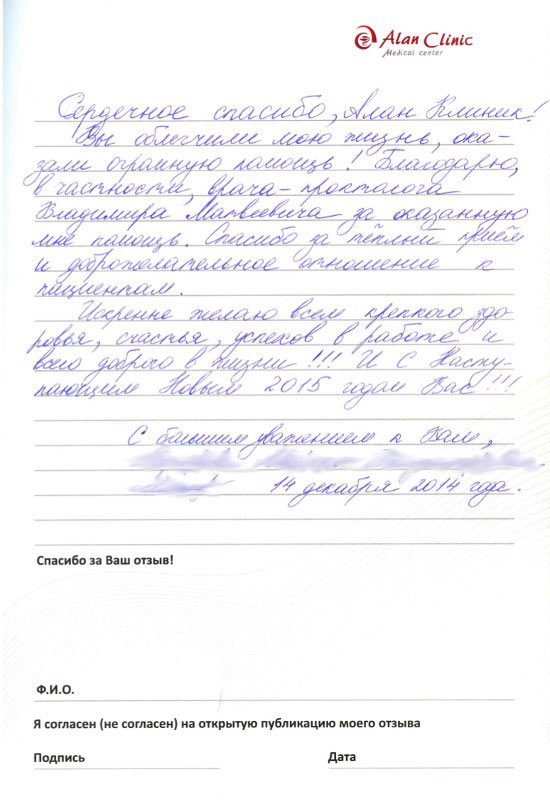 Alan Clinic
Medical center
Сердечное спасибо, Алан Клиник!
Вы облегчили мою жизнь, ока-
зали огромную помощь! Благодарю,
в частности, врача-проктолога
Владимира Матвеевича за оказанную
мне помощь. Спасибо за тёплый приём
и доброжелательное отношение к
пациентам.
Искренне желаю всем крепкого здо-
ровья, счастья, успехов в работе и
всего доброго в жизни!!! И С Насту-
пающим Новым 2015 годом Вас!!!
С большим уважением к Вам,
14 декабря 2014 года.
Спасибо за Ваш отзыв!
Ф.И.О.
Я согласен (не согласен) на открытую публикацию моего отзыва
Подпись Дата